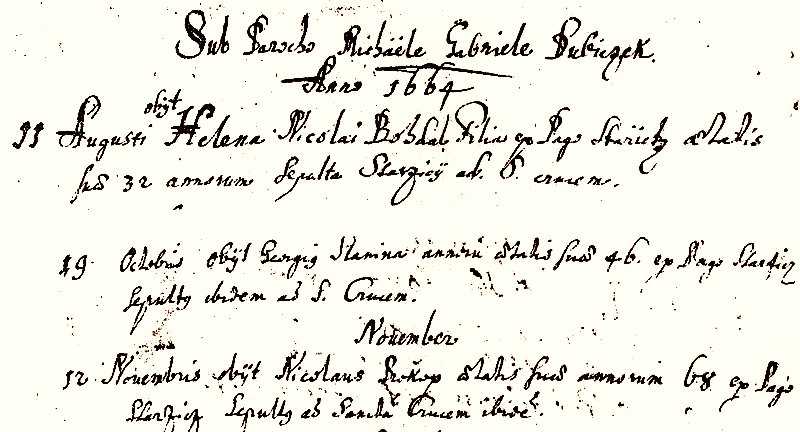 Sub Parocho Michäele Gabriele Pubiczek.
Anno 1664
obÿt
11 Augusti Helena Nicolai Bohdal Filia ex Pago Starÿcz ætatis
suæ 32 annorum sepulta Starziciÿ ad. S. crucem.
19 Octobris obÿt Georgiꝯ annorū ætatis suæ 46. ex Pago Starzicz
sepultꝯ ibidem ad S. Crucem.
November
12 Novembris obÿt Nicolaus Prokop ætatis suæ annorum 68 ex Pago
Starzicz sepultꝯ ad Sanctā Crucem ibidē.